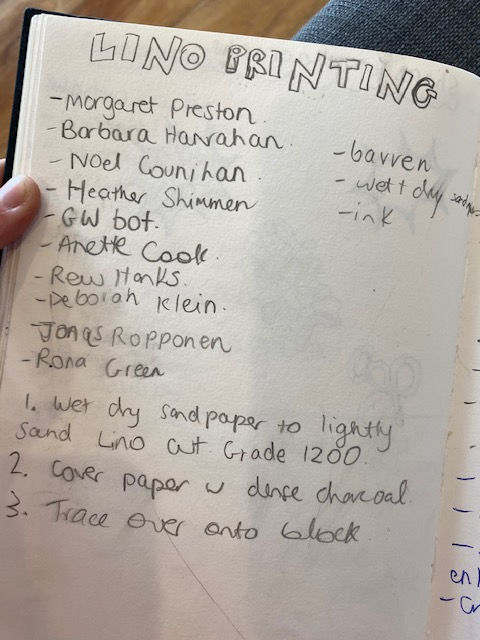 LINO PRINTING
- Margaret Preston.
- Barbara Hanrahan.
- Noel Counihan.
- Heather Shimmen
- GW bot.
- Anette Cook.
- Rew Hanks.
- Deborah Klein.
- Jonas Ropponen
- Rona Green
- barren
- wet + dry sandpaper
- ink
1. wet dry sandpaper to lightly
sand Lino cut. Grade 1200.
2. Cover paper w dense charcoal
3. Trace over onto block